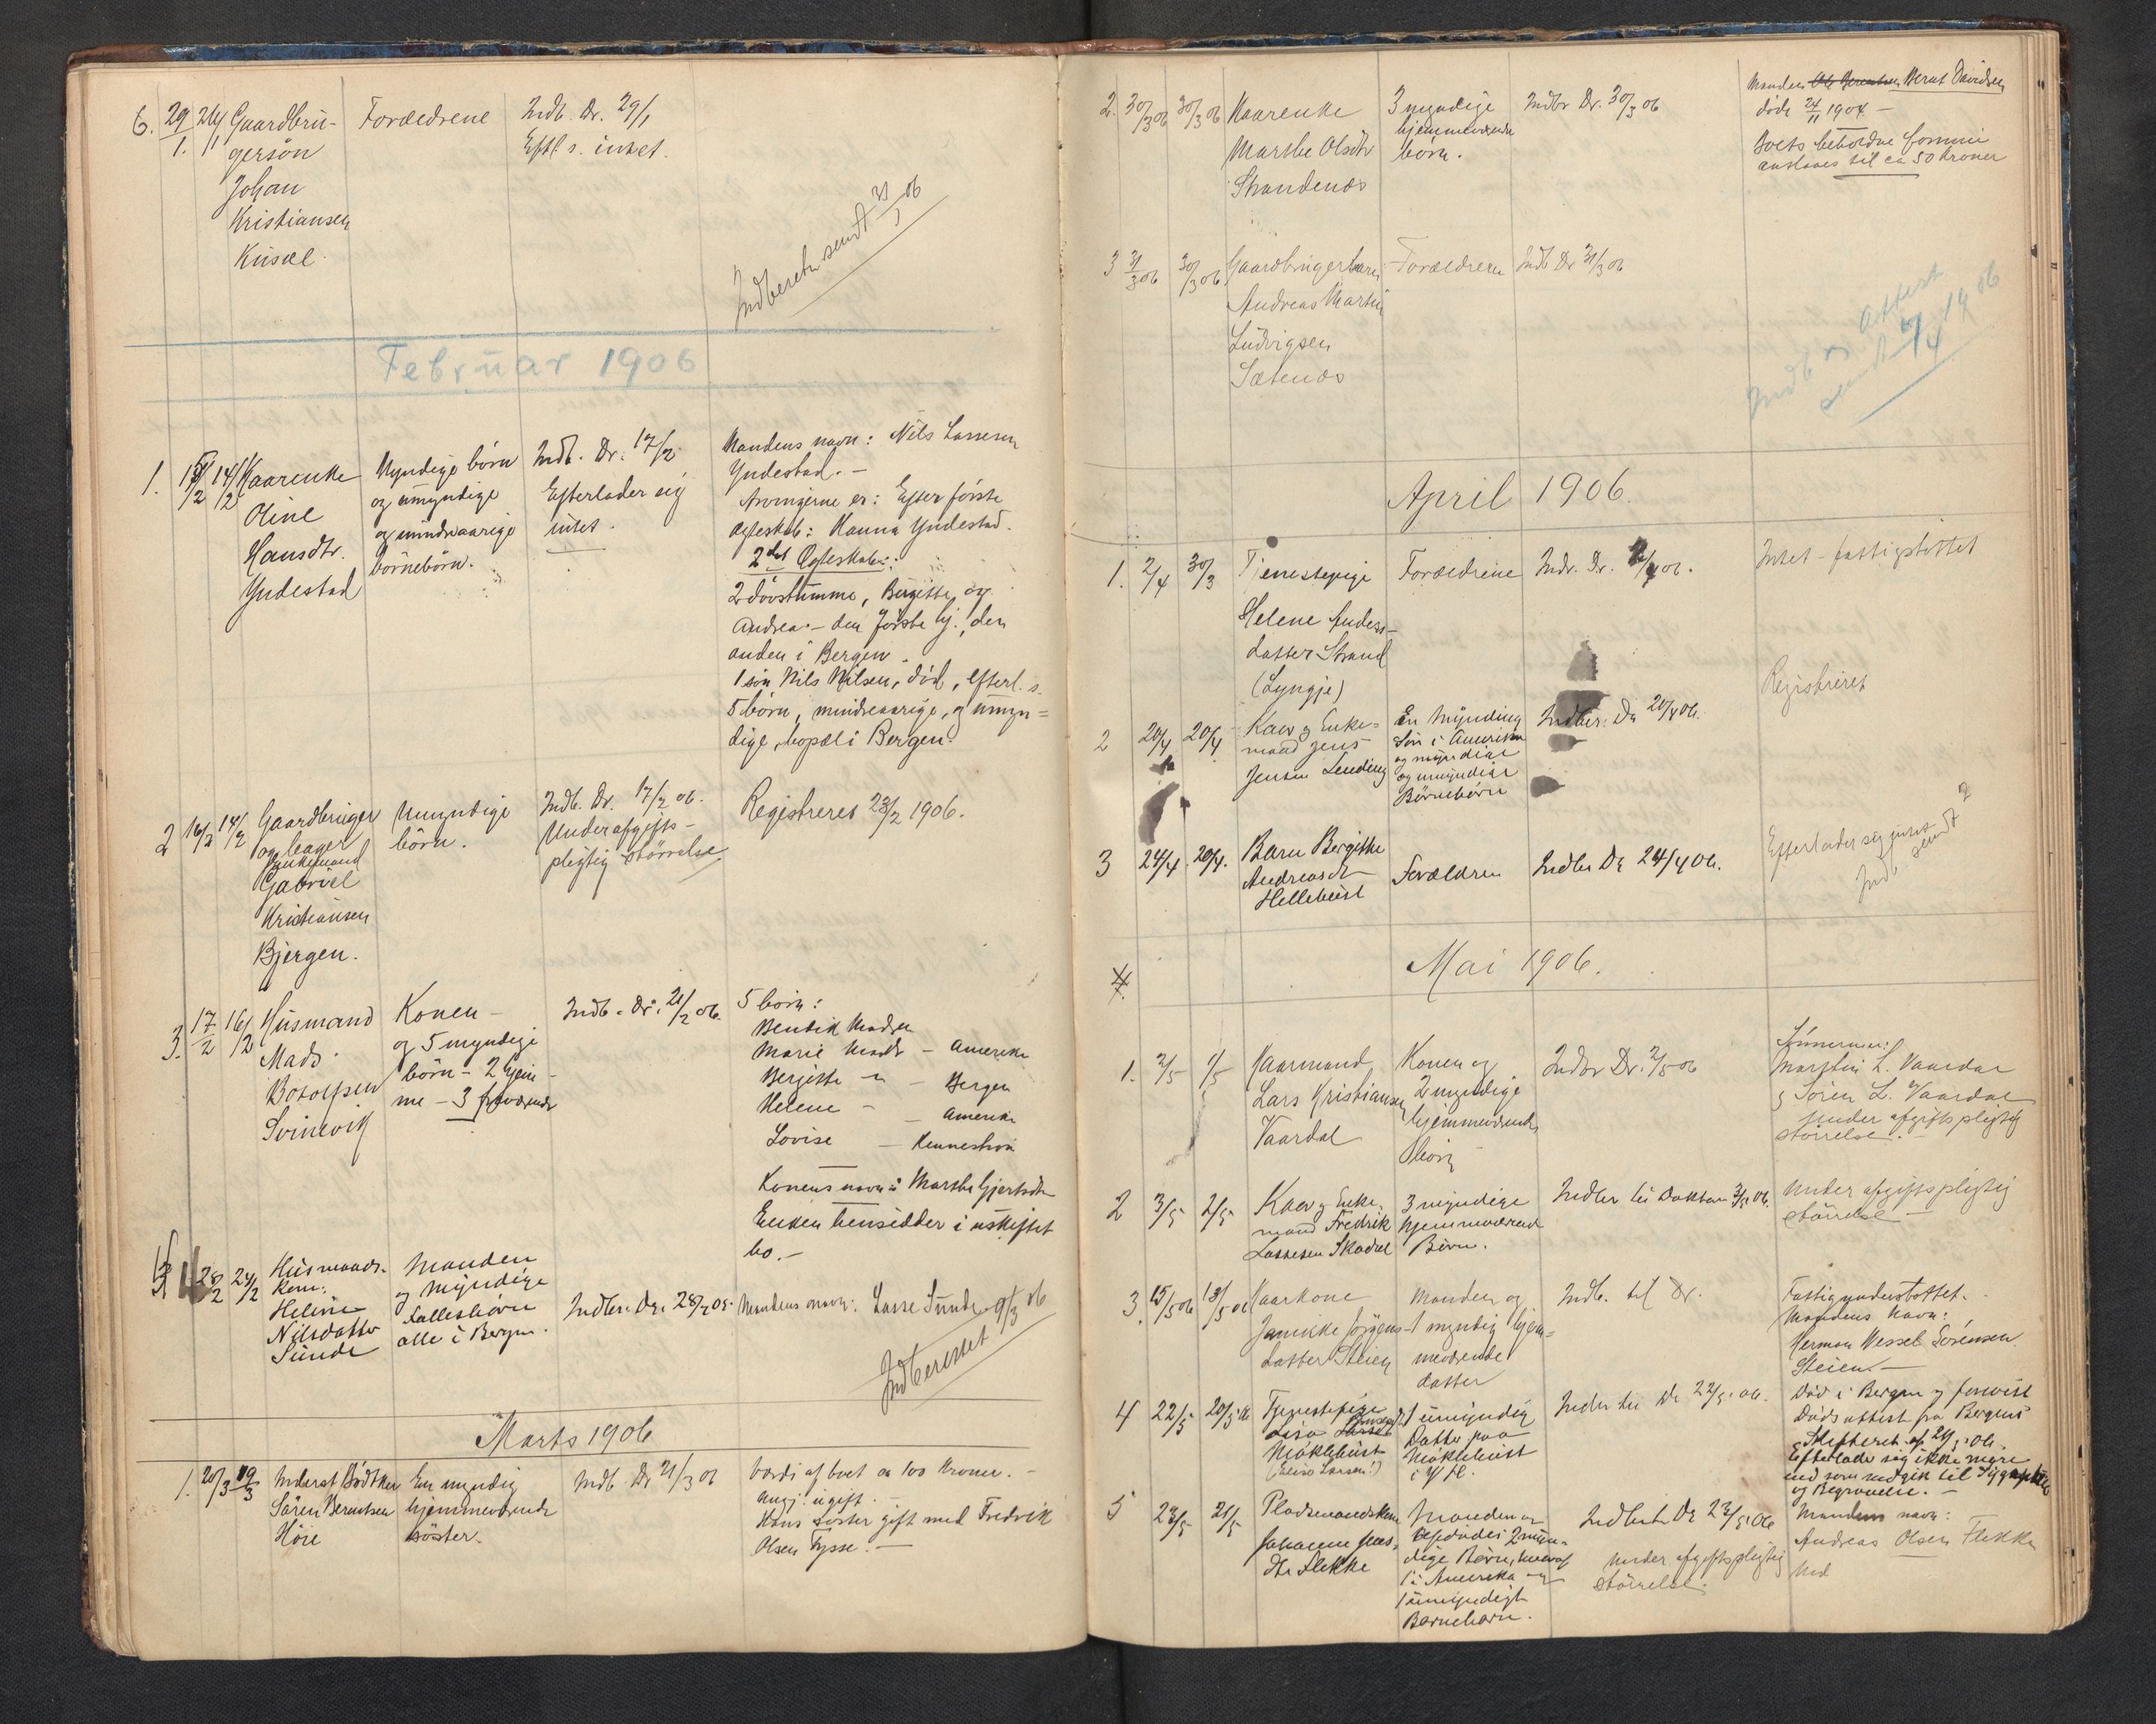 6. 29/1. 24/1 Gaardbru-
gersön
Johan
Kristiansen
Forældrene
Indb. Dr. 29/1
Eftl. s. intet.
Indberetn. sendt 31/1 06
Februar 1906
1. 15/2 14/2 Kaarenke
Oline
Hansdtr.
Yndestad
Myndige børn
og umyndige
og mindreaarige
börnebörn.
Indb. Dr. 17/2
Efterlader sig
intet.
Mandens navn: Nils Lassesen
Yndestad. -
Arvingerne er: Efter förste
Ægteskab: Hanna Yndestad.
2det Ægteskab:
2 dövstumme, Birgitte og
Andrea - den förste hj., den
anden i Bergen.
1 sön Nils Nilsen, död, efterl. s.
5 börn, mindreaarige, og umyn=
dige, bopæl i Bergen.
2 16/2 14/2 Gaardbruger
og
Enkemand
Gabriel
Kristiansen
Bjergen.
Umyndige
börn.
Indb. Dr. 17/2 06.
Under afgifts-
pligtig störrelse
Registreres 23/2 1906.
3. 17/2 16/2 Husmand
Mads
Botolfsen
Svinevik
Konen -
og 5 myndige
börn - 2 hjem-
me - 3 fraværende
Indb. Dr. 21/2 06.
5 börn:
Bendik Madsen
Marie Madsdtr - Amerika
Bergitte " - Bergen
Helene - - Amerika
Lovise -
Konens navn: Marthe Gjertsdtr
Enken hensidder i uskiftet
bo. -
4 28/2 24/2 Husmands-
kone:
Heline
Nilsdatter
Sunde
Manden
og Myndige
Fællesbörn
alle i Bergen.
Indber. Dr. 28/2 06.
Mandens navn: Lasse Sunde 9/3 06
Indberettet
Marts 1906
1. 20/3 19/3 Inderst
Sören Berentsen
Höie
En myndig
hjemmeværende
söster.
Indb. Dr 21/3 06
Værdi af boet ca 100 Kroner. -
Angj. ugift. -
Hans söster gift med Fredrik
Olsen Tysse. -
2. 30/3 06 30/3 06 Kaarenke
Marthe Olsdtr
Strandenæs
3 myndige
hjemmeværende
börn.
Indbr Dr. 30/3 06
Manden Berent Davidsen
döde 24/11 1904 -
Boets beholdne formue
anslaaes til ca 50 Kroner
3 31/3 06 30/3 06 Gaardbrugerbarn
Andreas Martin
Ludvigsen
Sætenæs
Forældrene
Indb Dr 31/3 06
Indb og attest
sendt 1/4 1906
April 1906.
1. 2/4 30/3 Tjenestepige
Helene Anders-
datter Strand
(Lyngje)
Forældrene
Indr. Dr. 2/4 06.
Intet - fattigstöttet
2 20/4 20/4 Kaar og Enke=
mand Jens
Jensen
En Myndig
Sön i Amerika
og myndige
og umyndige
Börnebörn
Indber: Dr 20/4 06.
Registreret
3 24/4 20/4. Barn Bergithe
Andreasdtr
Hellebust
Forældren
Indber Dr 24/4 06.
Efterlader sig intet
Indb sendt
Mai 1906.
1. 2/5 1/5 Kaarmand
Lars Kristiansen
Vaardal
Konen og
2 myndige
hjemmeværende
börn
Indbr Dr. 2/5 06
Sönnerne:
Marthin L. Vaardal
og Sören L. Vaardal
Under afgiftspligtig
störrelse. -
2 3/5 2/5 Kaar og Enke-
mand Fredrik
Lassesen Skadal
3 myndige
hjemmeværend
Börn.
Indber til Doktoren 3/5 06.
Under afgiftspligtig
störrelse -
3. 15/5 06 13/5 06 Kaarkone
Janikke Jörgens-
datter Steien
Manden og
1 myndig hjem=
meværende
datter
Indb. til Dr.
Fattigunderstöttet. -
Mandens Navn:
Herman Wessel Sörensen
Steien. -
4 22/5 20/5 06 Tjenestepige
Lisa
Möklebust
(Elise Larsen!)
1 umyndig
Datter paa
Möklebust
i
Indber til Dr 22/5 06.
Död i Bergen og forevist
Dödsattest fra Bergens
Skifteret af 21/5 06.
Efterlader sig ikke mere
end som medgik til
og Begravelse. -
5 23/5 21/5 Pladsmandskone
Johanne Jens-
dtr Flekke
Manden og
2 myn-
dige Börn, hvoraf
1 i Amerika og
1 umyndigt
Barnebarn.
Indber Dr 23/5 06
under afgiftspligtig
störrelse.
Mandens navn:
Andreas Olsen Flekke